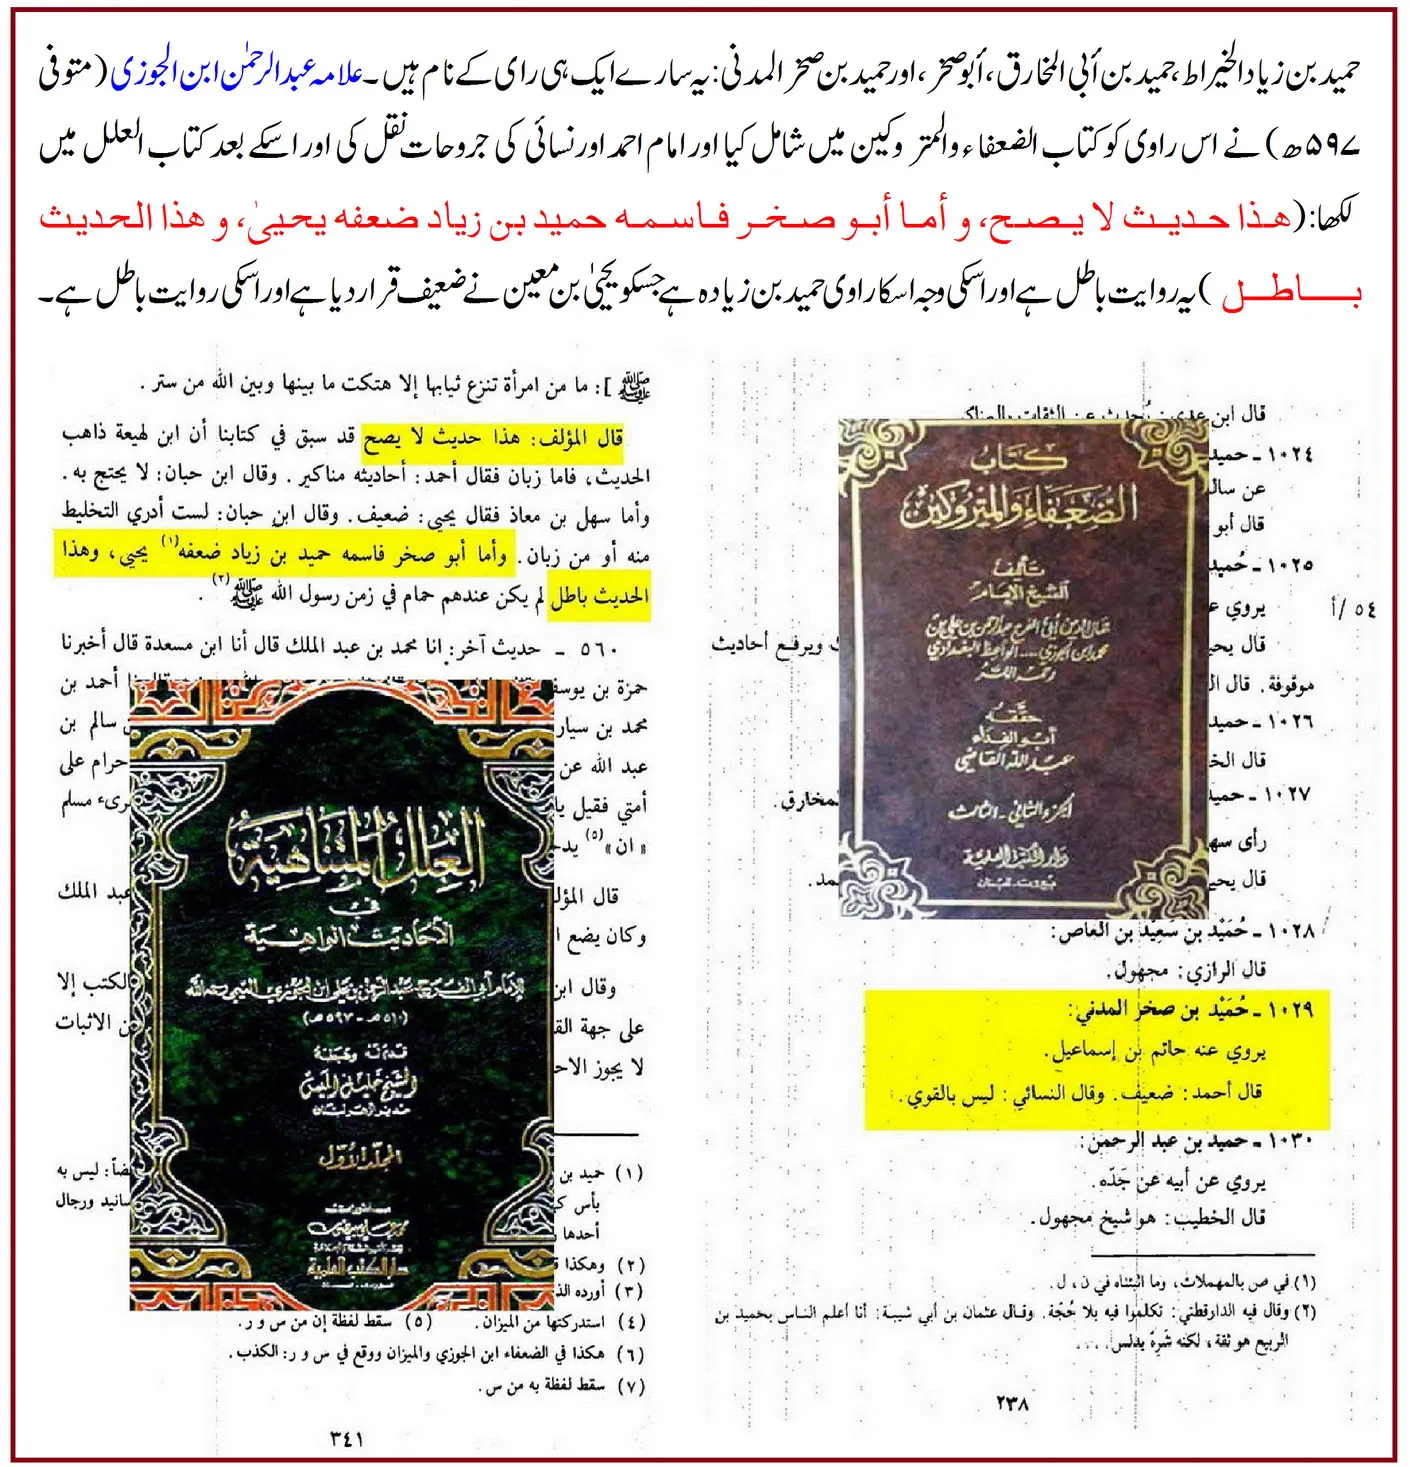 حمید بن زیاد الخیراط، حمید بن أبی المخارق، أبو صخر، اور حمید بن صخر المدنی: یہ سارے ایک ہی رای کے نام ہیں۔ علامہ عبد الرحمٰن ابن الجوزی (متوفی
۵۹۷ھ) نے اس راوی کو کتاب الضعفاء والمتروکین میں شامل کیا اور امام احمد اور نسائی کی جروحات نقل کی اور اسکے بعد کتاب العلل میں
لکھا: (هذا حديث لا يصح، و أما أبو صخر فاسمه حميد بن زياد ضعفه يحيىٰ، و هذا الحديث
باطل) یہ روایت باطل ہے اور اسکی وجہ اسکا راوی حمید بن زیادہ ہے جسکو یحییٰ بن معین نے ضعیف قرار دیا ہے اور اسکی روایت باطل ہے۔
ﷺ]: ما من امرأة تنزع ثيابها إلا هتكت ما بينها وبين الله من ستر.
قال المؤلف: هذا حديث لا يصح قد سبق في كتابنا أن ابن لهيعة ذاهب
الحديث، فاما زبان فقال أحمد: أحاديثه مناكير. وقال ابن حبان: لا يحتج به.
وأما سهل بن معاذ فقال يحيى: ضعيف. وقال ابن حبان: لست أدري التخليط
منه أو من زبان. وأما أبو صخر فاسمه حميد بن زياد ضعفه(١) يحيى، وهذا
الحديث باطل لم يكن عندهم حمام في زمن رسول الله ﷺ(٢).
٥٦٠ - حديث آخر: انا محمد بن عبد الملك قال أنا ابن مسعدة قال أخبرنا
حمزة بن يوسف
أحمد بن
محمد بن سيار
سالم بن
عبد الله عن
حرام على
أمتي فقيل يا
مرىء مسلم
« ان »(٥)
قال المؤلف
عبد الملك
وكان يضع
وقال ابن
الكتب إلا
على جهة
الاثبات
لا يجوز
العلل المتناهية
في
الأحاديث الواهية
للإمام أبي الفرج عبد الرحمن بن علي ابن الجوزي التيمي رحمه الله
(٥١٠هـ - ٥٩٧هـ)
قدم له وضبطه
الشيخ خليل الميس
مدير أزهر لبنان
المجلد الأول
منشورات
محمد علي بيضون
دار الكتب العلمية
(١) حميد بن
أيضاً: ليس به
بأس
سانيد ورجال
أحدها
(٢) وهكذا
(٣) أورده
(٤) استدركتها من الميزان. (٥) سقط لفظة إن من س و ر.
(٦) هكذا في الضعفاء ابن الجوزي والميزان ووقع في س و ر: الكذب.
(٧) سقط لفظة به من س.
٣٤١
قال ابن عدي: يُحدث عن الثقات بالمناكير
١٠٢٤ - حميد
عن سال
قال أبو
١٠٢٥ - حُميد
يروي
٥٤/أ
قال يحيى
ويرفع أحاديث
موقوفة. قال
١٠٢٦ - حميد
قال الخ
١٠٢٧ - حميد
المخارق.
رأى سه
قال يحيى
كتاب
الضعفاء والمتروكين
تأليف
الشيخ الإمام
جمال الدين أبي الفرج عبد الرحمن بن علي بن
محمد ابن الجوزي الواعظ البغدادي
رحمه الله
حققه
أبو الفداء
عبد الله القاضي
الجزء الثاني - الثالث
دار الكتب العلمية
بيروت - لبنان
١٠٢٨ - حُمَيْد بن سَعِيْد بن العاص:
قال الرازي: مجهول.
١٠٢٩ - حُمَيْد بن صخر المدني:
يروي عنه حاتم بن إسماعيل.
قال أحمد: ضعيف. وقال النسائي: ليس بالقوي.
١٠٣٠ - حميد بن عبد الرحمن:
يروي عن أبيه عن جَدّه.
قال الخطيب: هو شيخ مجهول.
(١) في ص بالمهملات، وما اثبتناه في ن، ل.
(٢) وقال فيه الدارقطني: تكلموا فيه بلا حُجّة. وقال عثمان بن أبي شيبة: أنا أعلم الناس بحميد بن
الربيع هو ثقة، لكنه شَرِهٌ يدلس....
٢٣٨